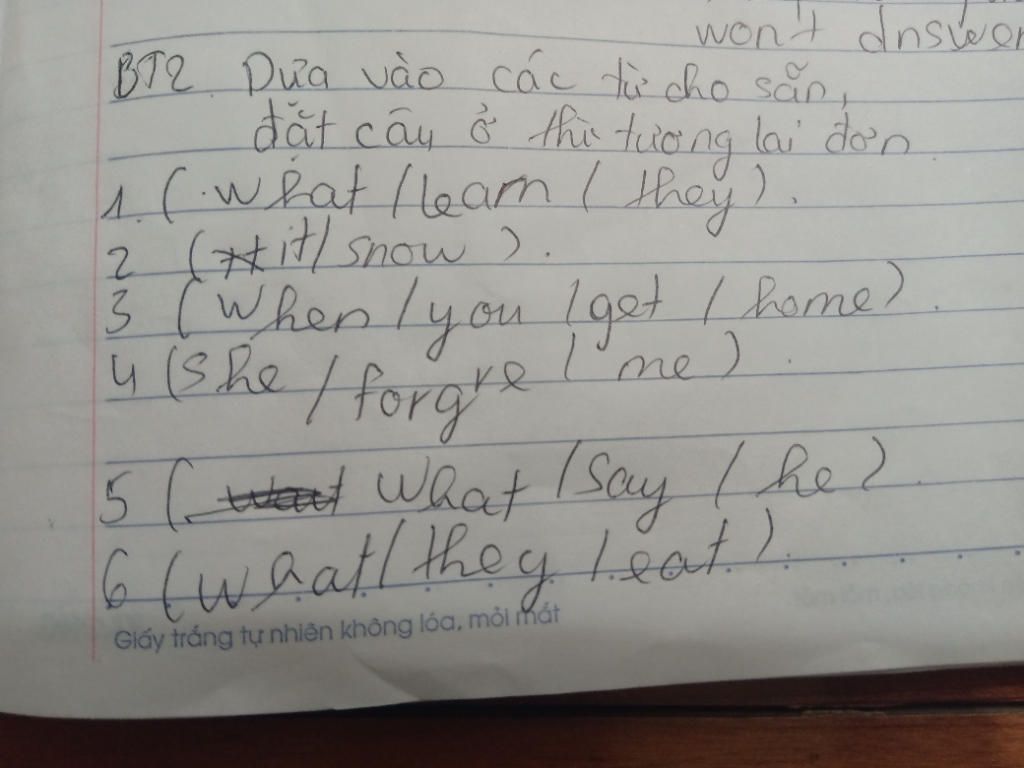 won't answer
BT2. Dựa vào các từ cho sẵn,
đặt câu ở thì tương lai đơn
1. (. What / learn / they).
2 (it / snow).
3 (When / you / get / home).
4 (She / forgve / me).
5 (. What / say / he).
6 (What / they / eat).
Giấy trắng tự nhiên không lóa, mỏi mắt